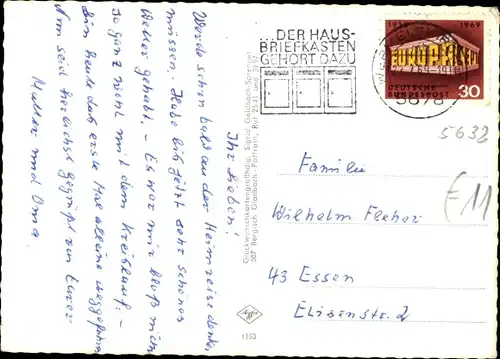 Ihr Lieben!
Werde schon bald an der Heimreise denken
müssen. Habe bis jetzt sehr schönes
Wetter gehabt. - Es war mir bloß nicht
so ganz nicht mit dem Kreislauf. -
Bin heute das erste Mal alleine weggefahren
Nun seid herzlichst gegrüßt von Eurer
Mutter und Oma.
Glückwunschkartengroßhdlg. Sigrid Galdbach-Sprenger
507 Bergisch Gladbach-Paffrath, Ruf 2541 und 3997
1153
...DER HAUS-
BRIEFKASTEN
GEHÖRT DAZU
1969
EUROPA CEPT
DEUTSCHE
BUNDESPOST
30
5678
5632
E11
Familie
Wilhelm Fleher
43 Essen
Elisenstr. 2